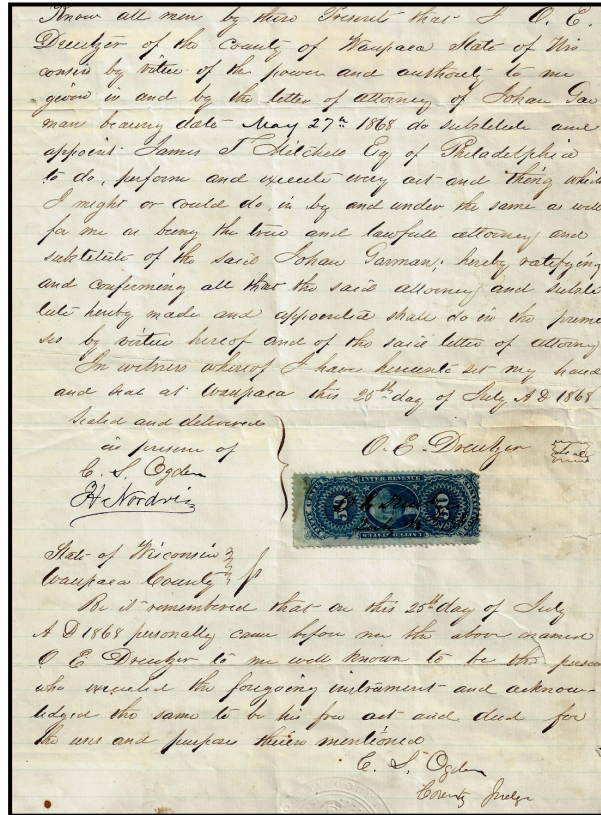 Know all men by these Presents that I O. E.
Dreutzer of the County of Waupaca State of Wis
consin by virtue of the power and authority to me
given in and by the letter of attorney of Johan Gar
man bearing date May 27th 1868 do substitute and
appoint James T Mitchell Esq of Philadelphia
to do, perform and execute every act and thing which
I might or could do, in by and under the same as well
for me as being the true and lawfull attorney and
substitute of the said Johan Garman; hereby ratifying
and confirming all that the said attorney and substi
tute hereby made and appointed shall do in the premi
ses by virtue hereof and of the said letter of attorney
In witness whereof I have hereunto set my hand
and seal at Waupaca this 25th day of July A D 1868
Sealed and delivered
in presence of
C. S. Ogden
H Nordvi
O. E. Dreutzer Seal
INTER. REVENUE
50 50
UNITED STATES
State of Wisconsin
Waupaca County ss
Be it remembered that on this 25th day of July
A D 1868 personally came before me the above named
O E Dreutzer to me well known to be the person
who executed the foregoing instrument and acknow-
ledged the same to be his free act and deed for
the uses and purposes therein mentioned
C. S. Ogden
County Judge